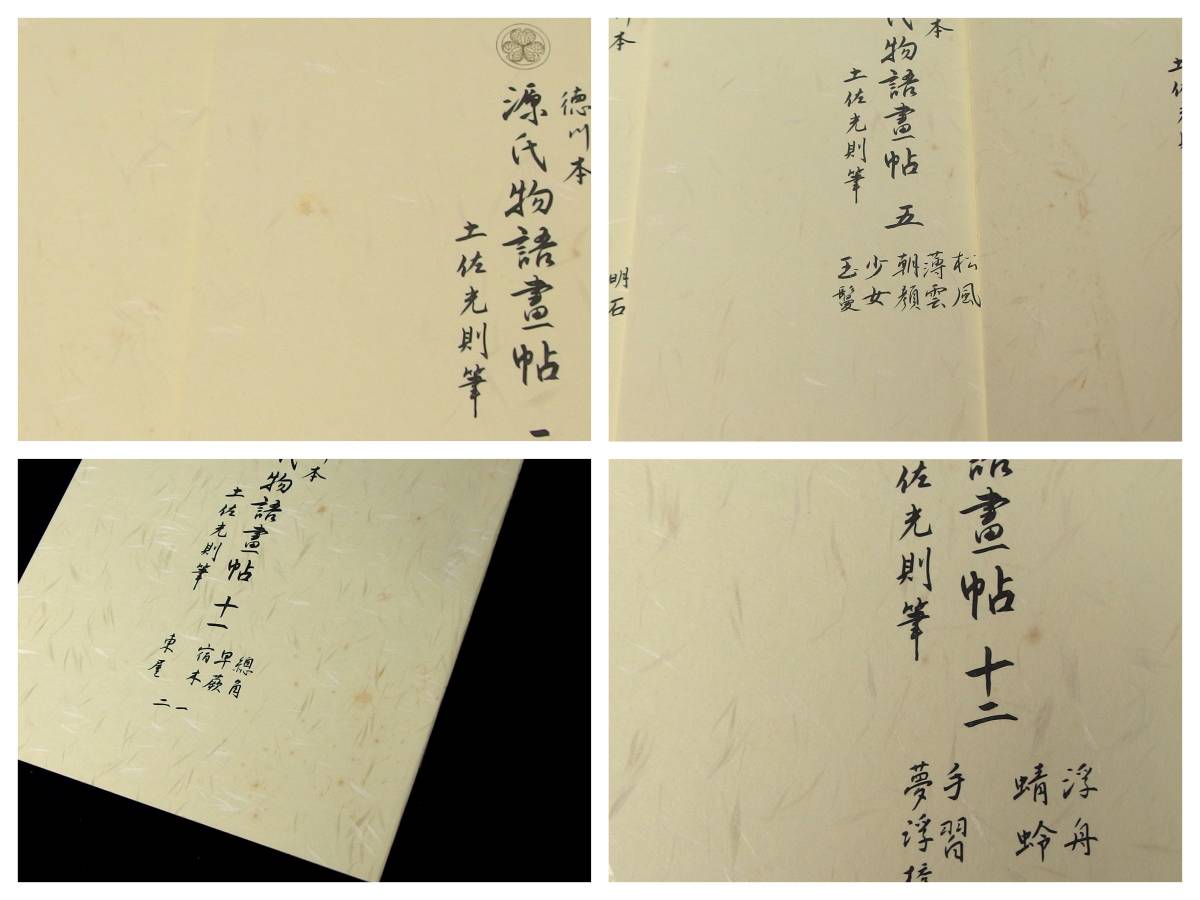 徳川本
源氏物語畫帖 一
土佐光則筆
本
氏物語畫帖 五
土佐光則筆
松風
薄雲
朝顔
少女
玉鬘
本
明石
土佐光則
本
氏物語畫帖 十一
土佐光則筆
總角
早蕨
宿木
一
二
東屋
語畫帖 十二
佐光則筆
浮舟
蜻蛉
手習
夢浮橋